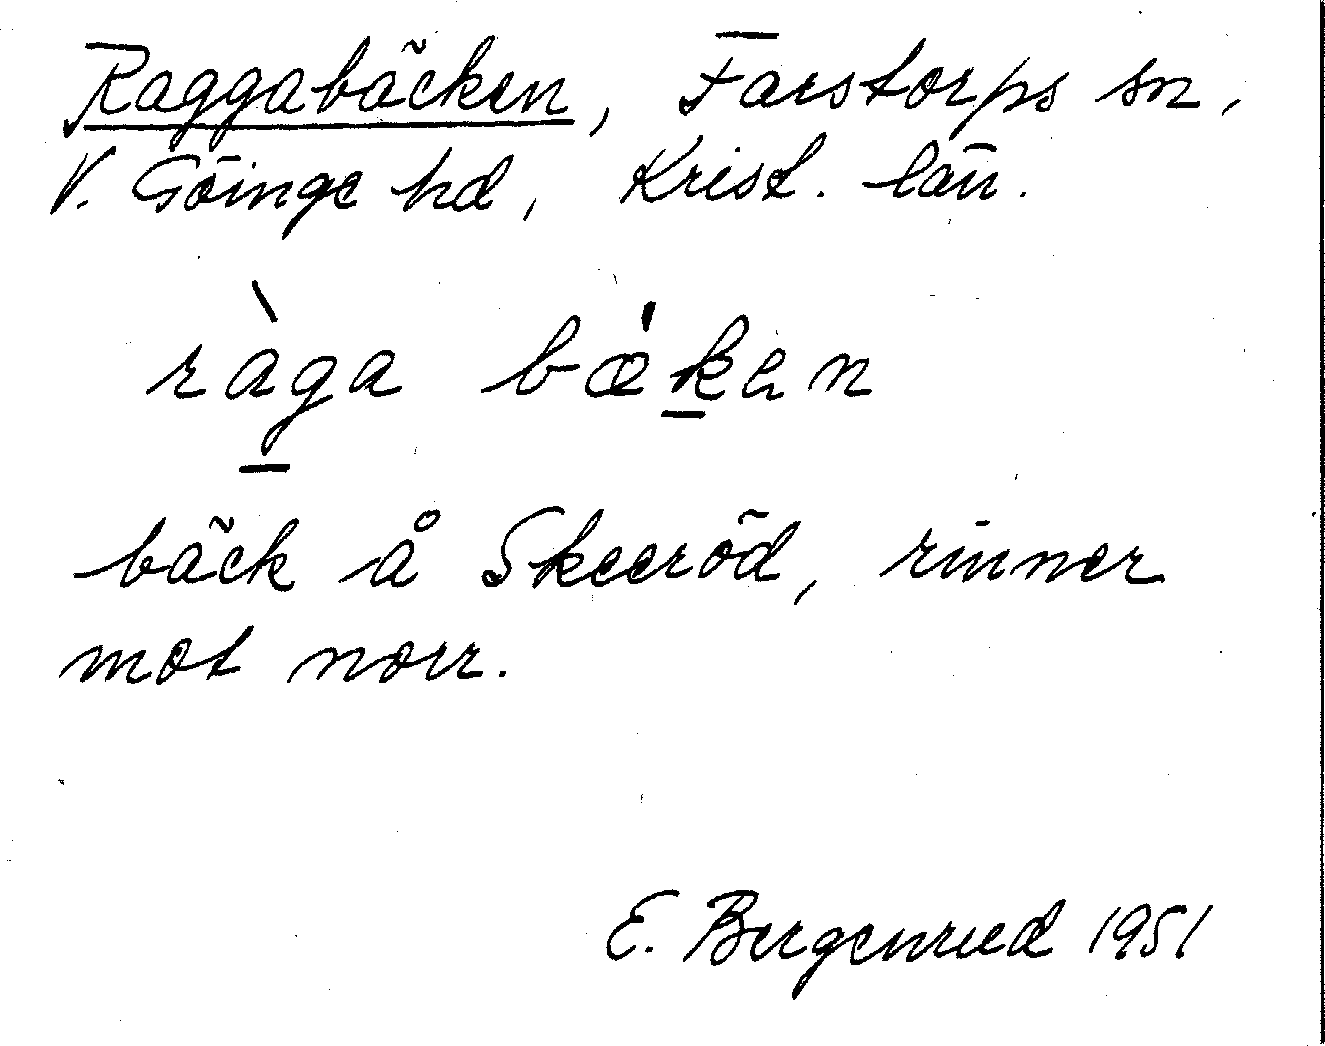 Raggabäcken, Farstorps sn,
V. Göinge hd, Krist. län.
ràga bœ́ken
bäck å Skeeröd, rinner
mot norr.
E. Bergenrud 1951